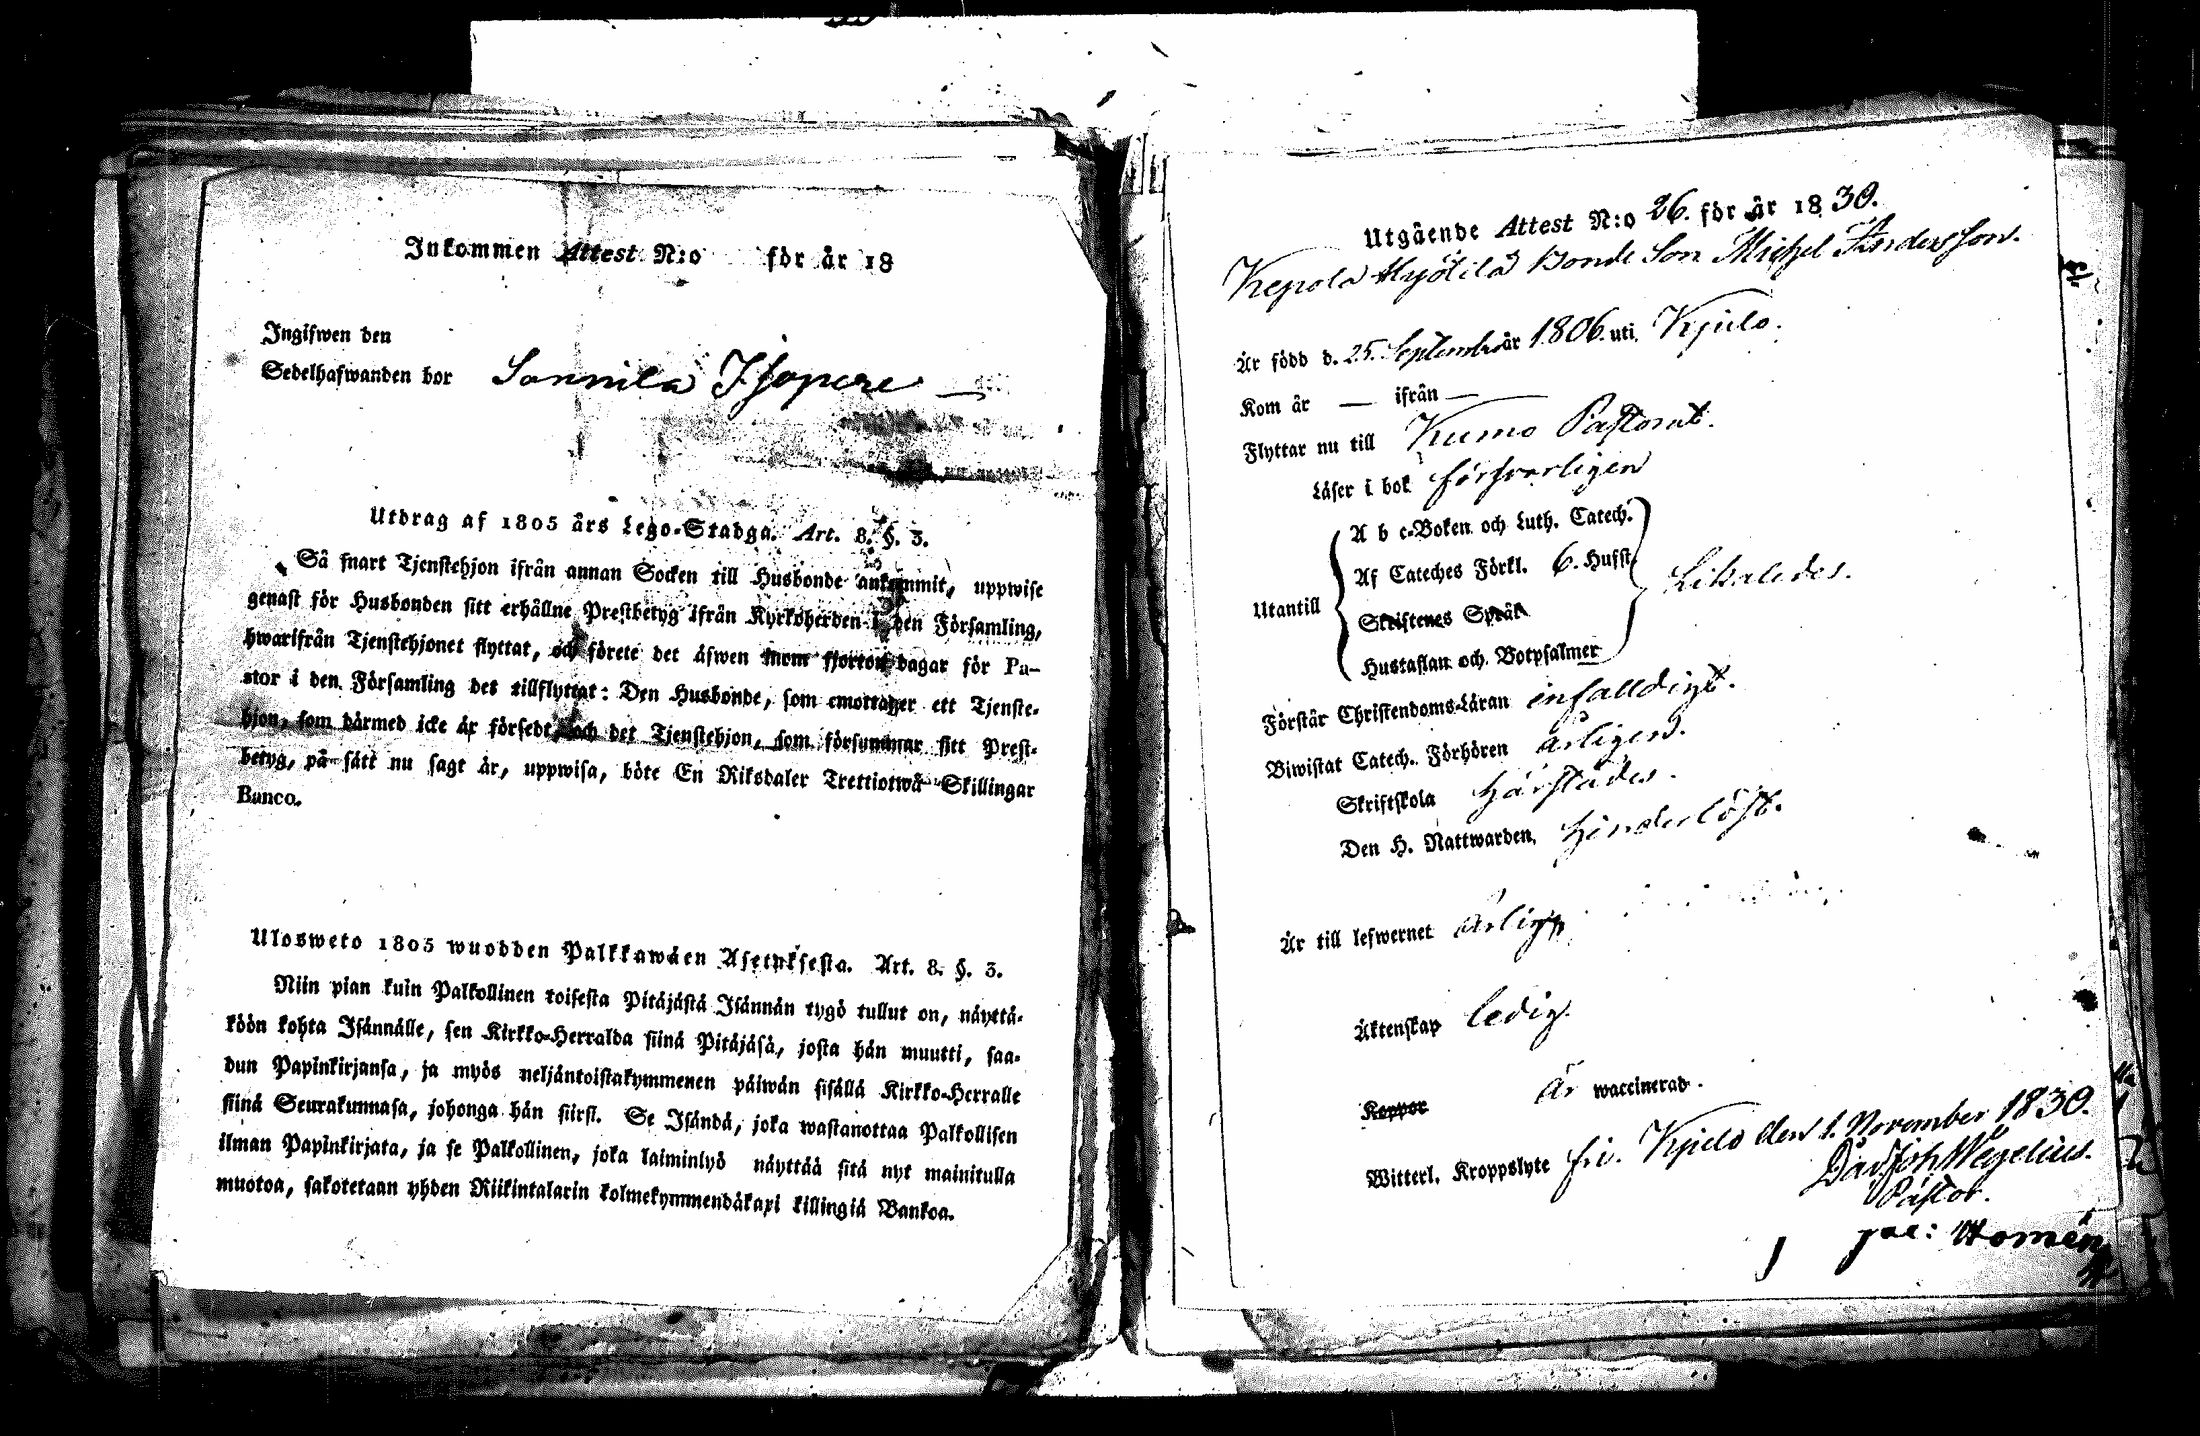 Inkommen Attest N:o för år 18
Ingifwen den
Sedelhafwanden bor Sonnila Isopere
Utdrag af 1805 års Lego-Stadga. Art. 8. §. 3.
Så snart Tjenstehjon ifrån annan Socken till Husbonde ankommit, uppwise
genast för Husbonden sitt erhållne Prestbetyg ifrån Kyrkoherden i den Församling,
hwarifrån Tjenstehjonet flyttat, och förete det äfwen inom fjorton dagar för Pa-
stor i den Församling det tillflyttat: Den Husbonde, som emottager ett Tjenste-
hjon, som därmed icke är försedt, och det Tjenstehjon, som försummar sitt Prest-
betyg, på sätt nu sagt är, uppwisa, böte En Riksdaler Trettiotwå Skillingar
Banco.
Ulosweto 1805 wuodden Palkkawäen Asetuksesta. Art. 8. §. 3.
Niin pian kuin Palkollinen toisesta Pitäjästä Isännän tygö tullut on, näyttä-
köön kohta Isännälle, sen Kirkko-Herralda siinä Pitäjäsä, josta hän muutti, saa-
dun Papinkirjansa, ja myös neljäntoistakymmenen päiwän sisällä Kirkko-Herralle
siinä Seurakunnasa, johonga hän siirsi. Se Isändä, joka wastanottaa Palkollisen
ilman Papinkirjata, ja se Palkollinen, joka laiminlyö näyttää sitä nyt mainitulla
muotoa, sakotetaan yhden Riikintalarin kolmekymmendäkaxi killingiä Bankoa.
Utgående Attest N:o 26. för år 1830.
Kepola Myötilä Bonde Son Michel Andersson.
Är född d. 25. September år 1806. uti Kjulo.
Kom år — ifrån —
Flyttar nu till Kumo Pastorat.
Läser i bok försvarligen
A b c-Boken och Luth. Catech.
Af Cateches Förkl. 6. Hufst.
Utantill Likaledes.
Skriftenes Språk
Hustaflan och Botpsalmer
Förstår Christendoms-Läran enfalldigt.
Biwistat Catech. Förhören årligen.
Skriftskola härstädes.
Den H. Nattwarden, hinderlöst.
Är till lefwernet ärlig
Äktenskap ledig.
Koppor är waccinerad.
Witterl. Kroppslyte fri. Kjulo den 1. November 1830.
Dav. Joh. Wegelius.
Pastor.